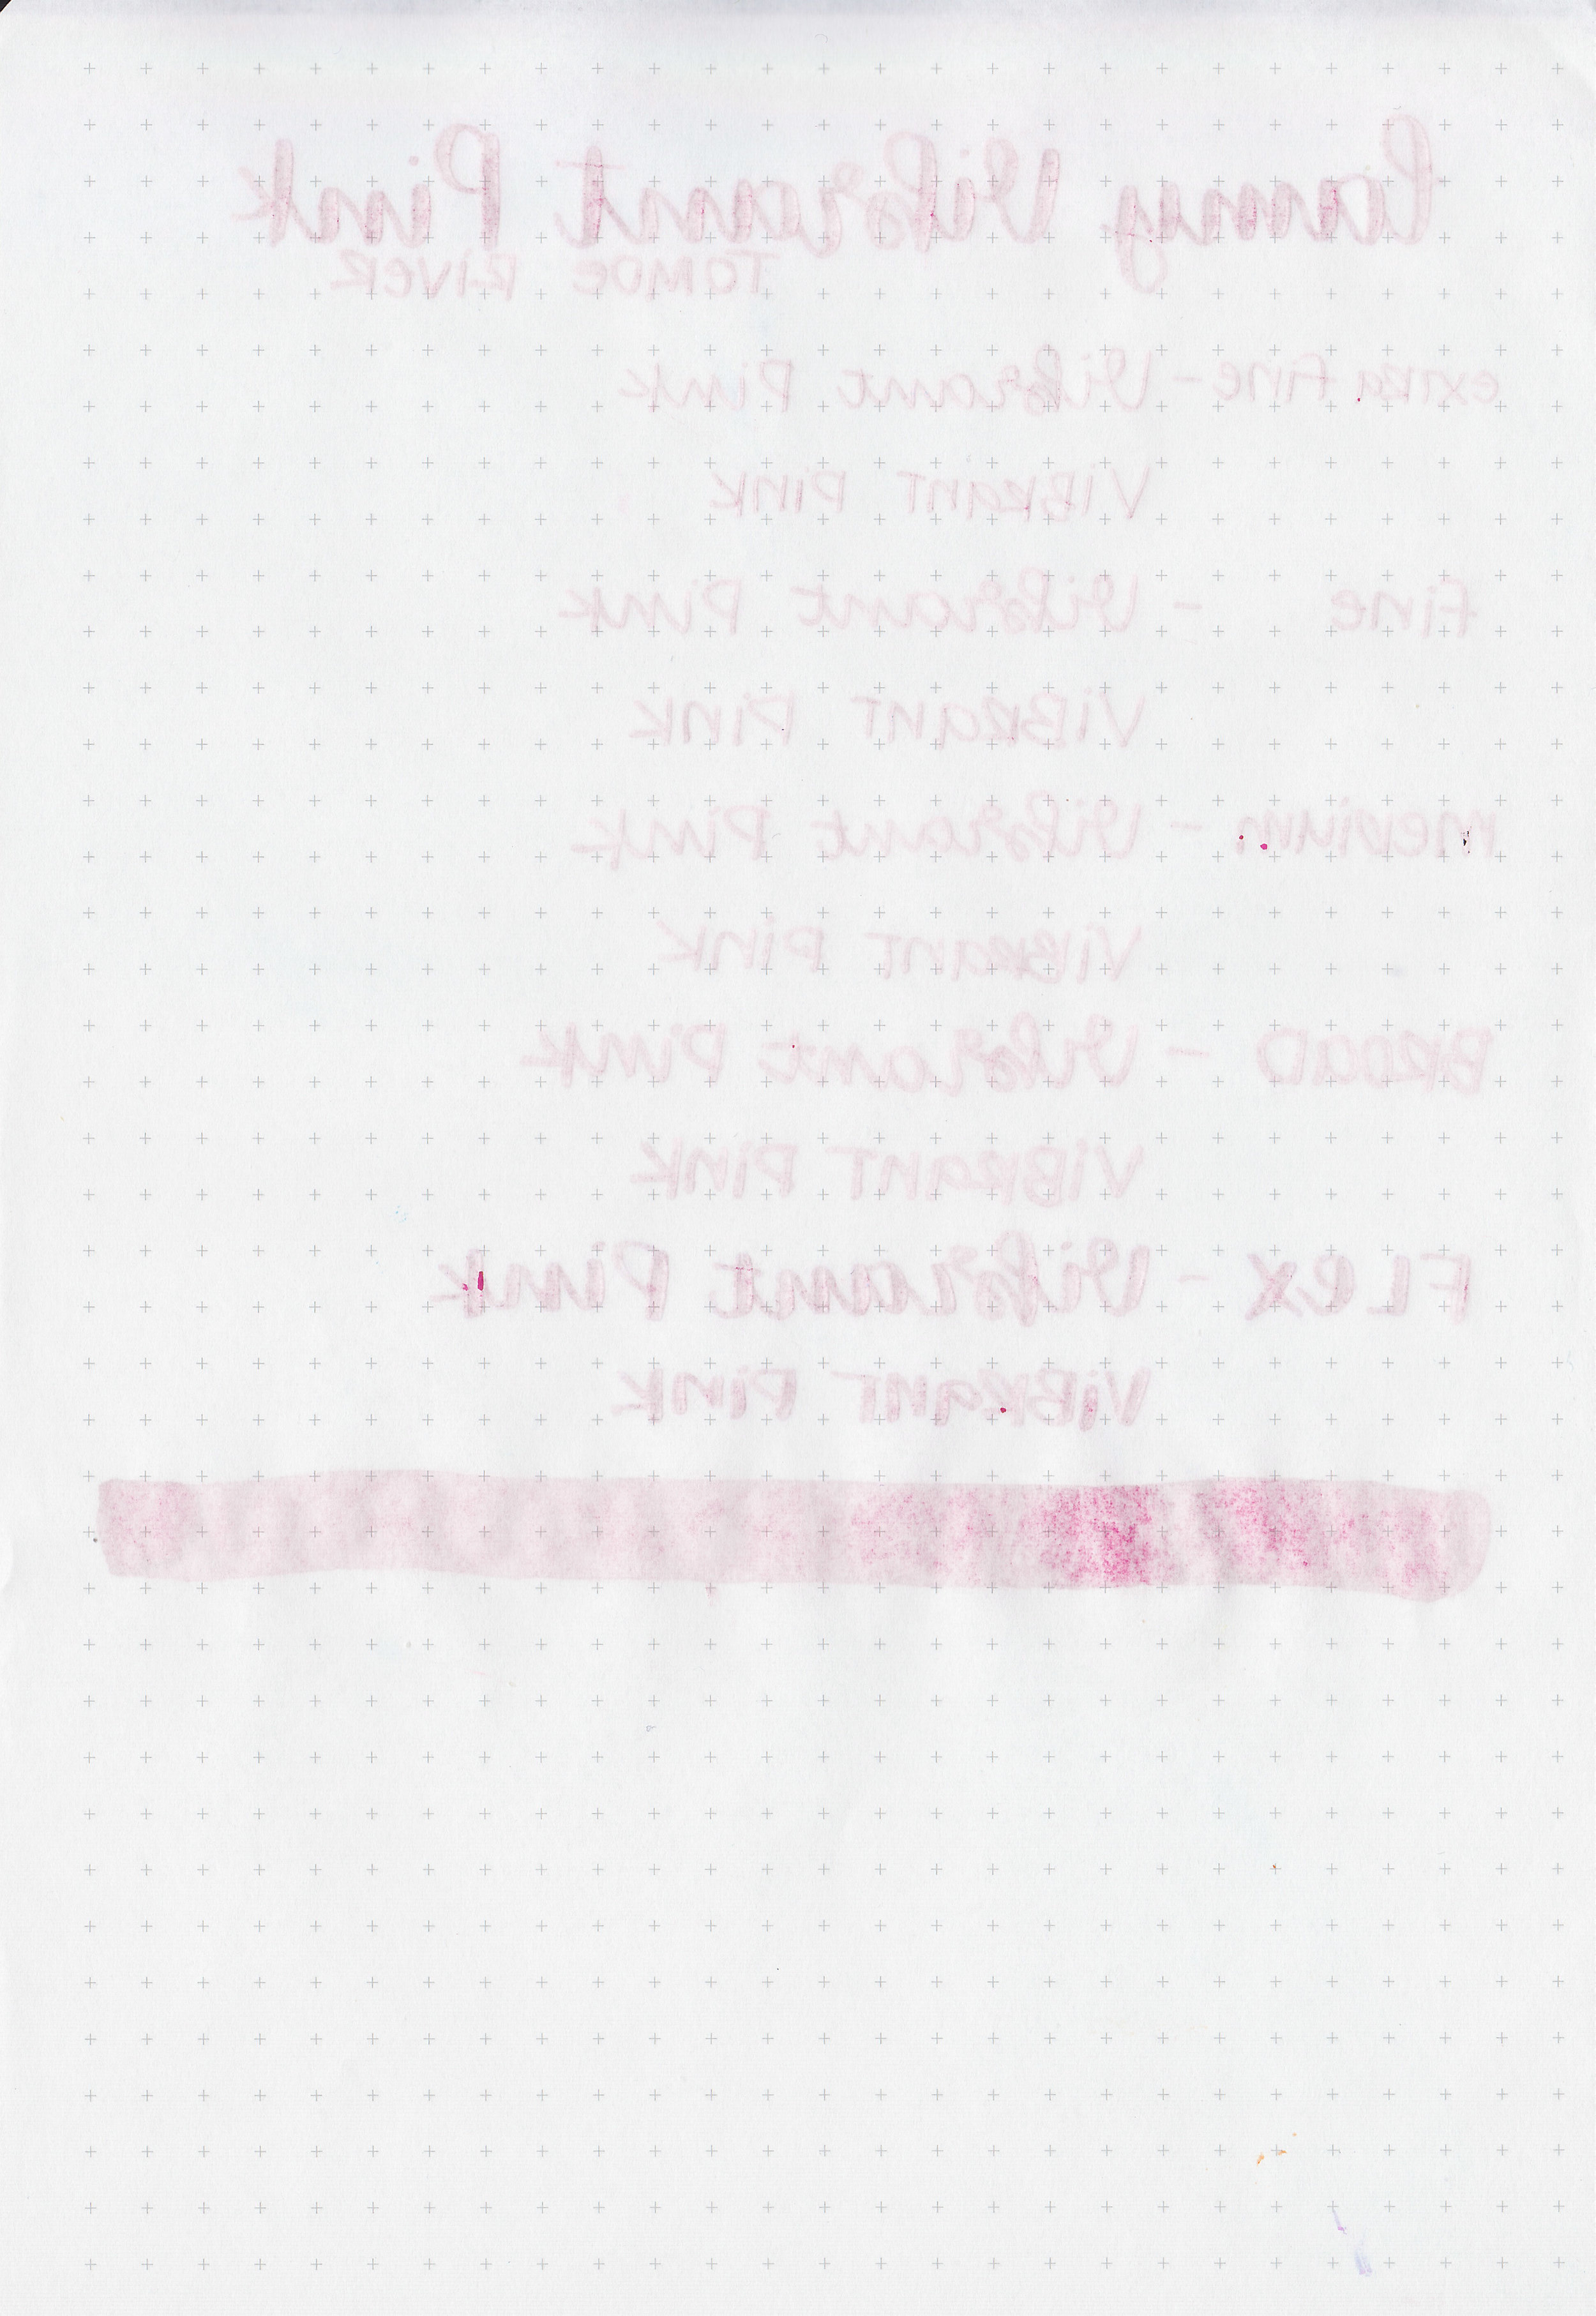 Lamy Vibrant Pink
TOMOE RIVER
extra fine - Vibrant Pink
ViBRanT Pink
fine - Vibrant Pink
ViBRanT Pink
meDium - Vibrant Pink
ViBRanT Pink
BROaD - Vibrant Pink
ViBRanT Pink
FLex - Vibrant Pink
ViBRanT Pink